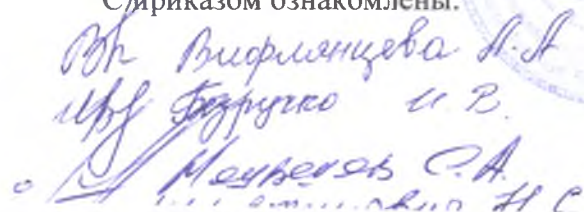 С приказом ознакомлены:
Вифлянцева А. А
Безручко И. В.
Медведев С. А.
Н. С